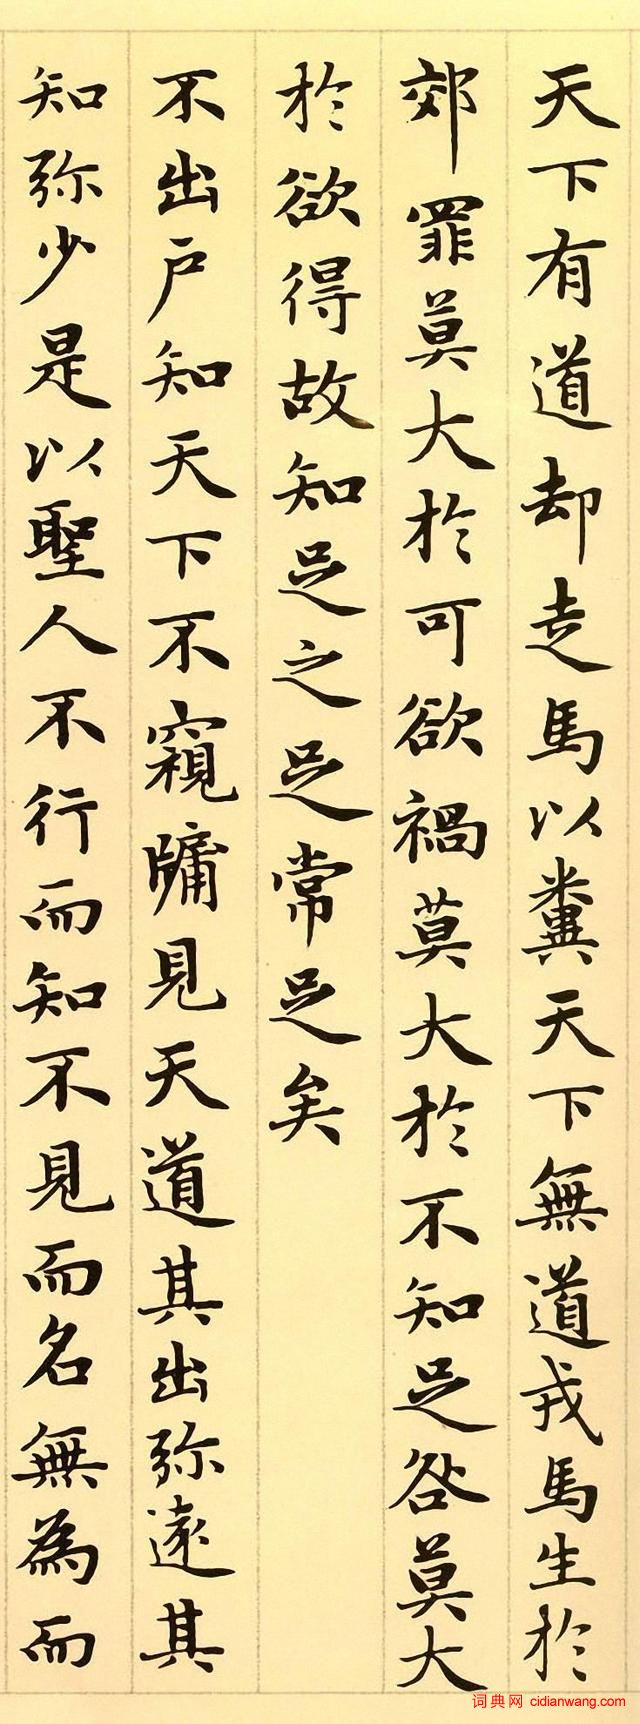 天下有道却走馬以糞天下無道戎馬生於
郊罪莫大於可欲禍莫大於不知足咎莫大
於欲得故知足之足常足矣
不出户知天下不窺牖見天道其出弥遠其
知弥少是以聖人不行而知不見而名無為而
词典网 cidianwang.com